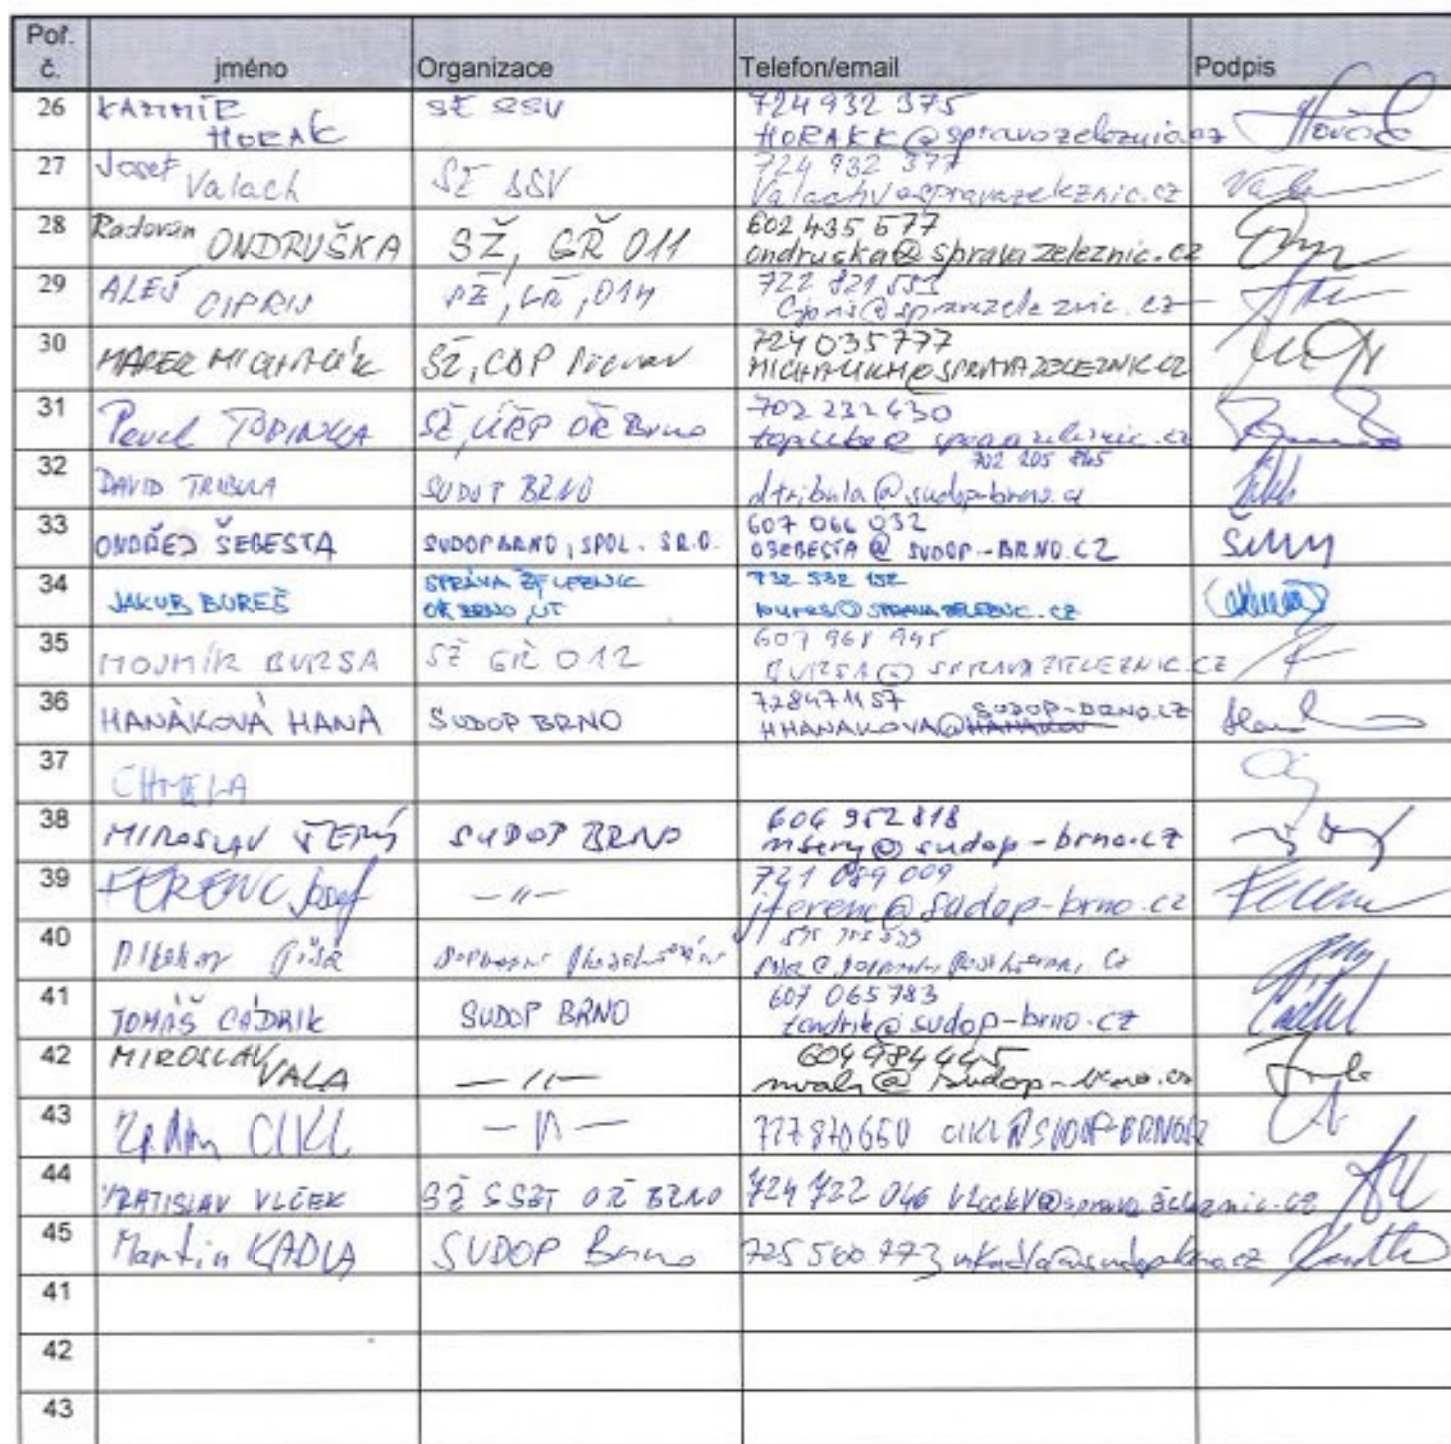 Poř. č. jméno Organizace Telefon/email Podpis
26 KAZIMÍR HORÁK SŽ SSV 724 932 375
HORAKK@spravazeleznic.cz
27 Josef Valach SŽ SSV 724 932 377
Valachv@spravazeleznic.cz
28 Radovan ONDRUŠKA SŽ, GŘ O11 602 435 577
ondruska@spravazeleznic.cz
29 ALEŠ CIPRIS SŽ, GŘ, O14 722 821 553
@spravazeleznic.cz
30 MAREK MICHALÍK SŽ, CDP 724 035 777
@SPRAVAZELEZNIC.CZ
31 Pavel TOPINKA SŽ, OŘ Brno 702 232 430
@spravazeleznic.cz
32 DAVID TRIBULA SUDOP BRNO 702 205 845
dtribula@sudop-brno.cz
33 ONDŘEJ ŠEBESTA SUDOP BRNO, SPOL. S R.O. 607 066 032
OSEBESTA@SUDOP-BRNO.CZ
34 JAKUB BUREŠ SPRÁVA ŽELEZNIC 732 532 152
OŘ BRNO, ÚT bures@SPRAVAZELEZNIC.CZ
35 MOJMÍR BURSA SŽ GŘ O12 607 968 945
BURSA@SPRAVAZELEZNIC.CZ
36 HANÁKOVÁ HANA SUDOP BRNO 728471157 SUDOP-BRNO.CZ
HHANAKOVA@HANAKOV
37 CHMELA
38 MIROSLAV ŠERÝ SUDOP BRNO 606 952 818
msery@sudop-brno.cz
39 FERENC Josef —〃— 721 089 009
jferenc@sudop-brno.cz
40
41 TOMÁŠ CÁDRIK SUDOP BRNO 607 065 783
@sudop-brno.cz
42 MIROSLAV VALA —〃— 604 984 445
mvala@sudop-brno.cz
43 CIKL —〃— 777 870 660 CIKL@SUDOP-BRNO.CZ
44 VRATISLAV VLČEK SŽ SSZT OŘ BRNO 724 722 046 VlcekV@spravazeleznic.cz
45 Martin KADLA SUDOP Brno 725 560 773 mkadla@sudop-brno.cz
41
42
43